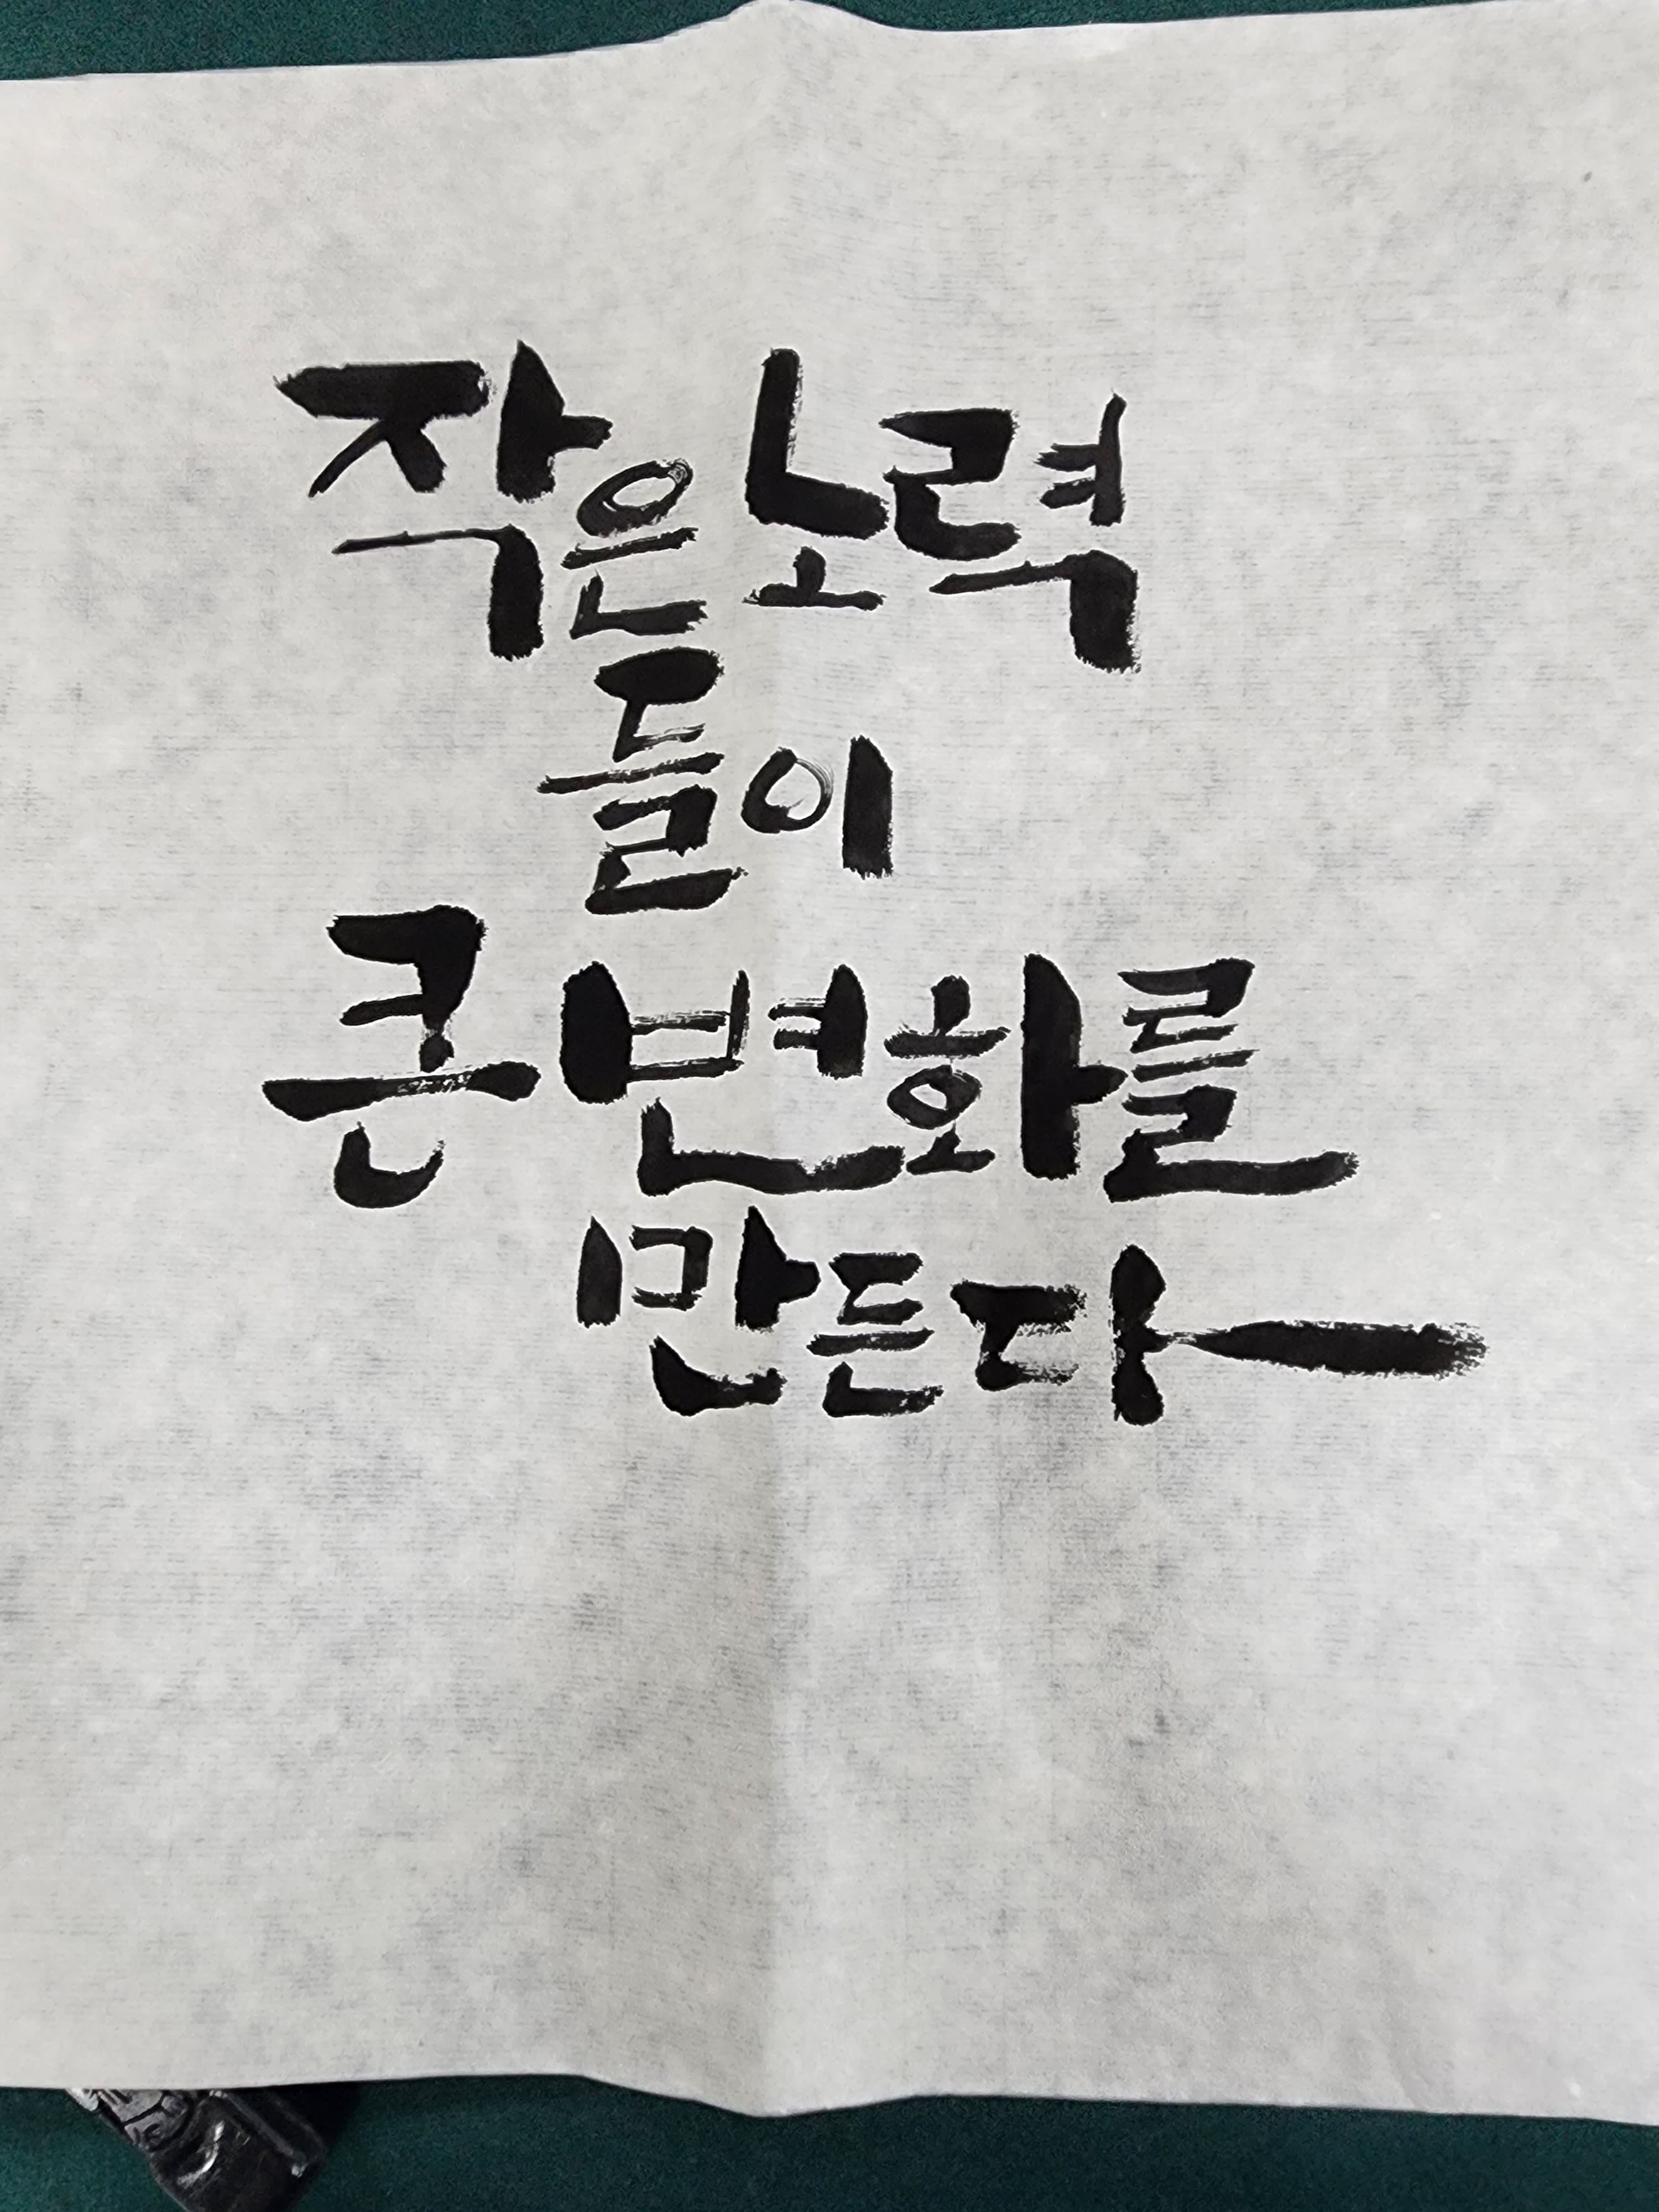 작은 노력
들이
큰 변화를
만든다